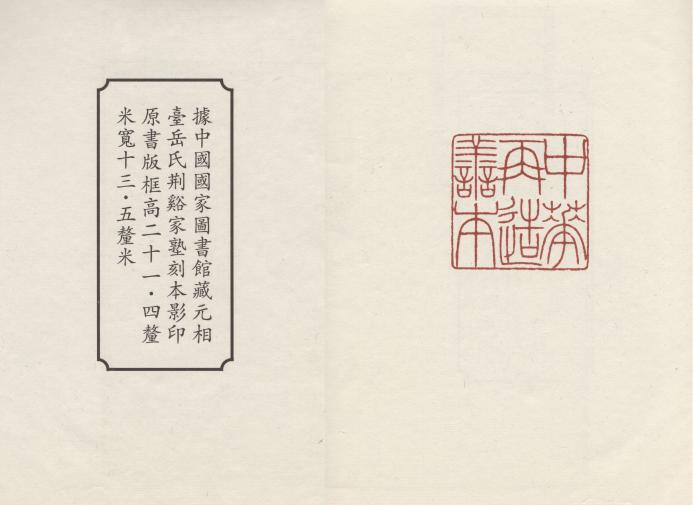 中華
再造
善本
據中國國家圖書館藏元相
臺岳氏荆谿家塾刻本影印
原書版框高二十一·四釐
米寬十三·五釐米